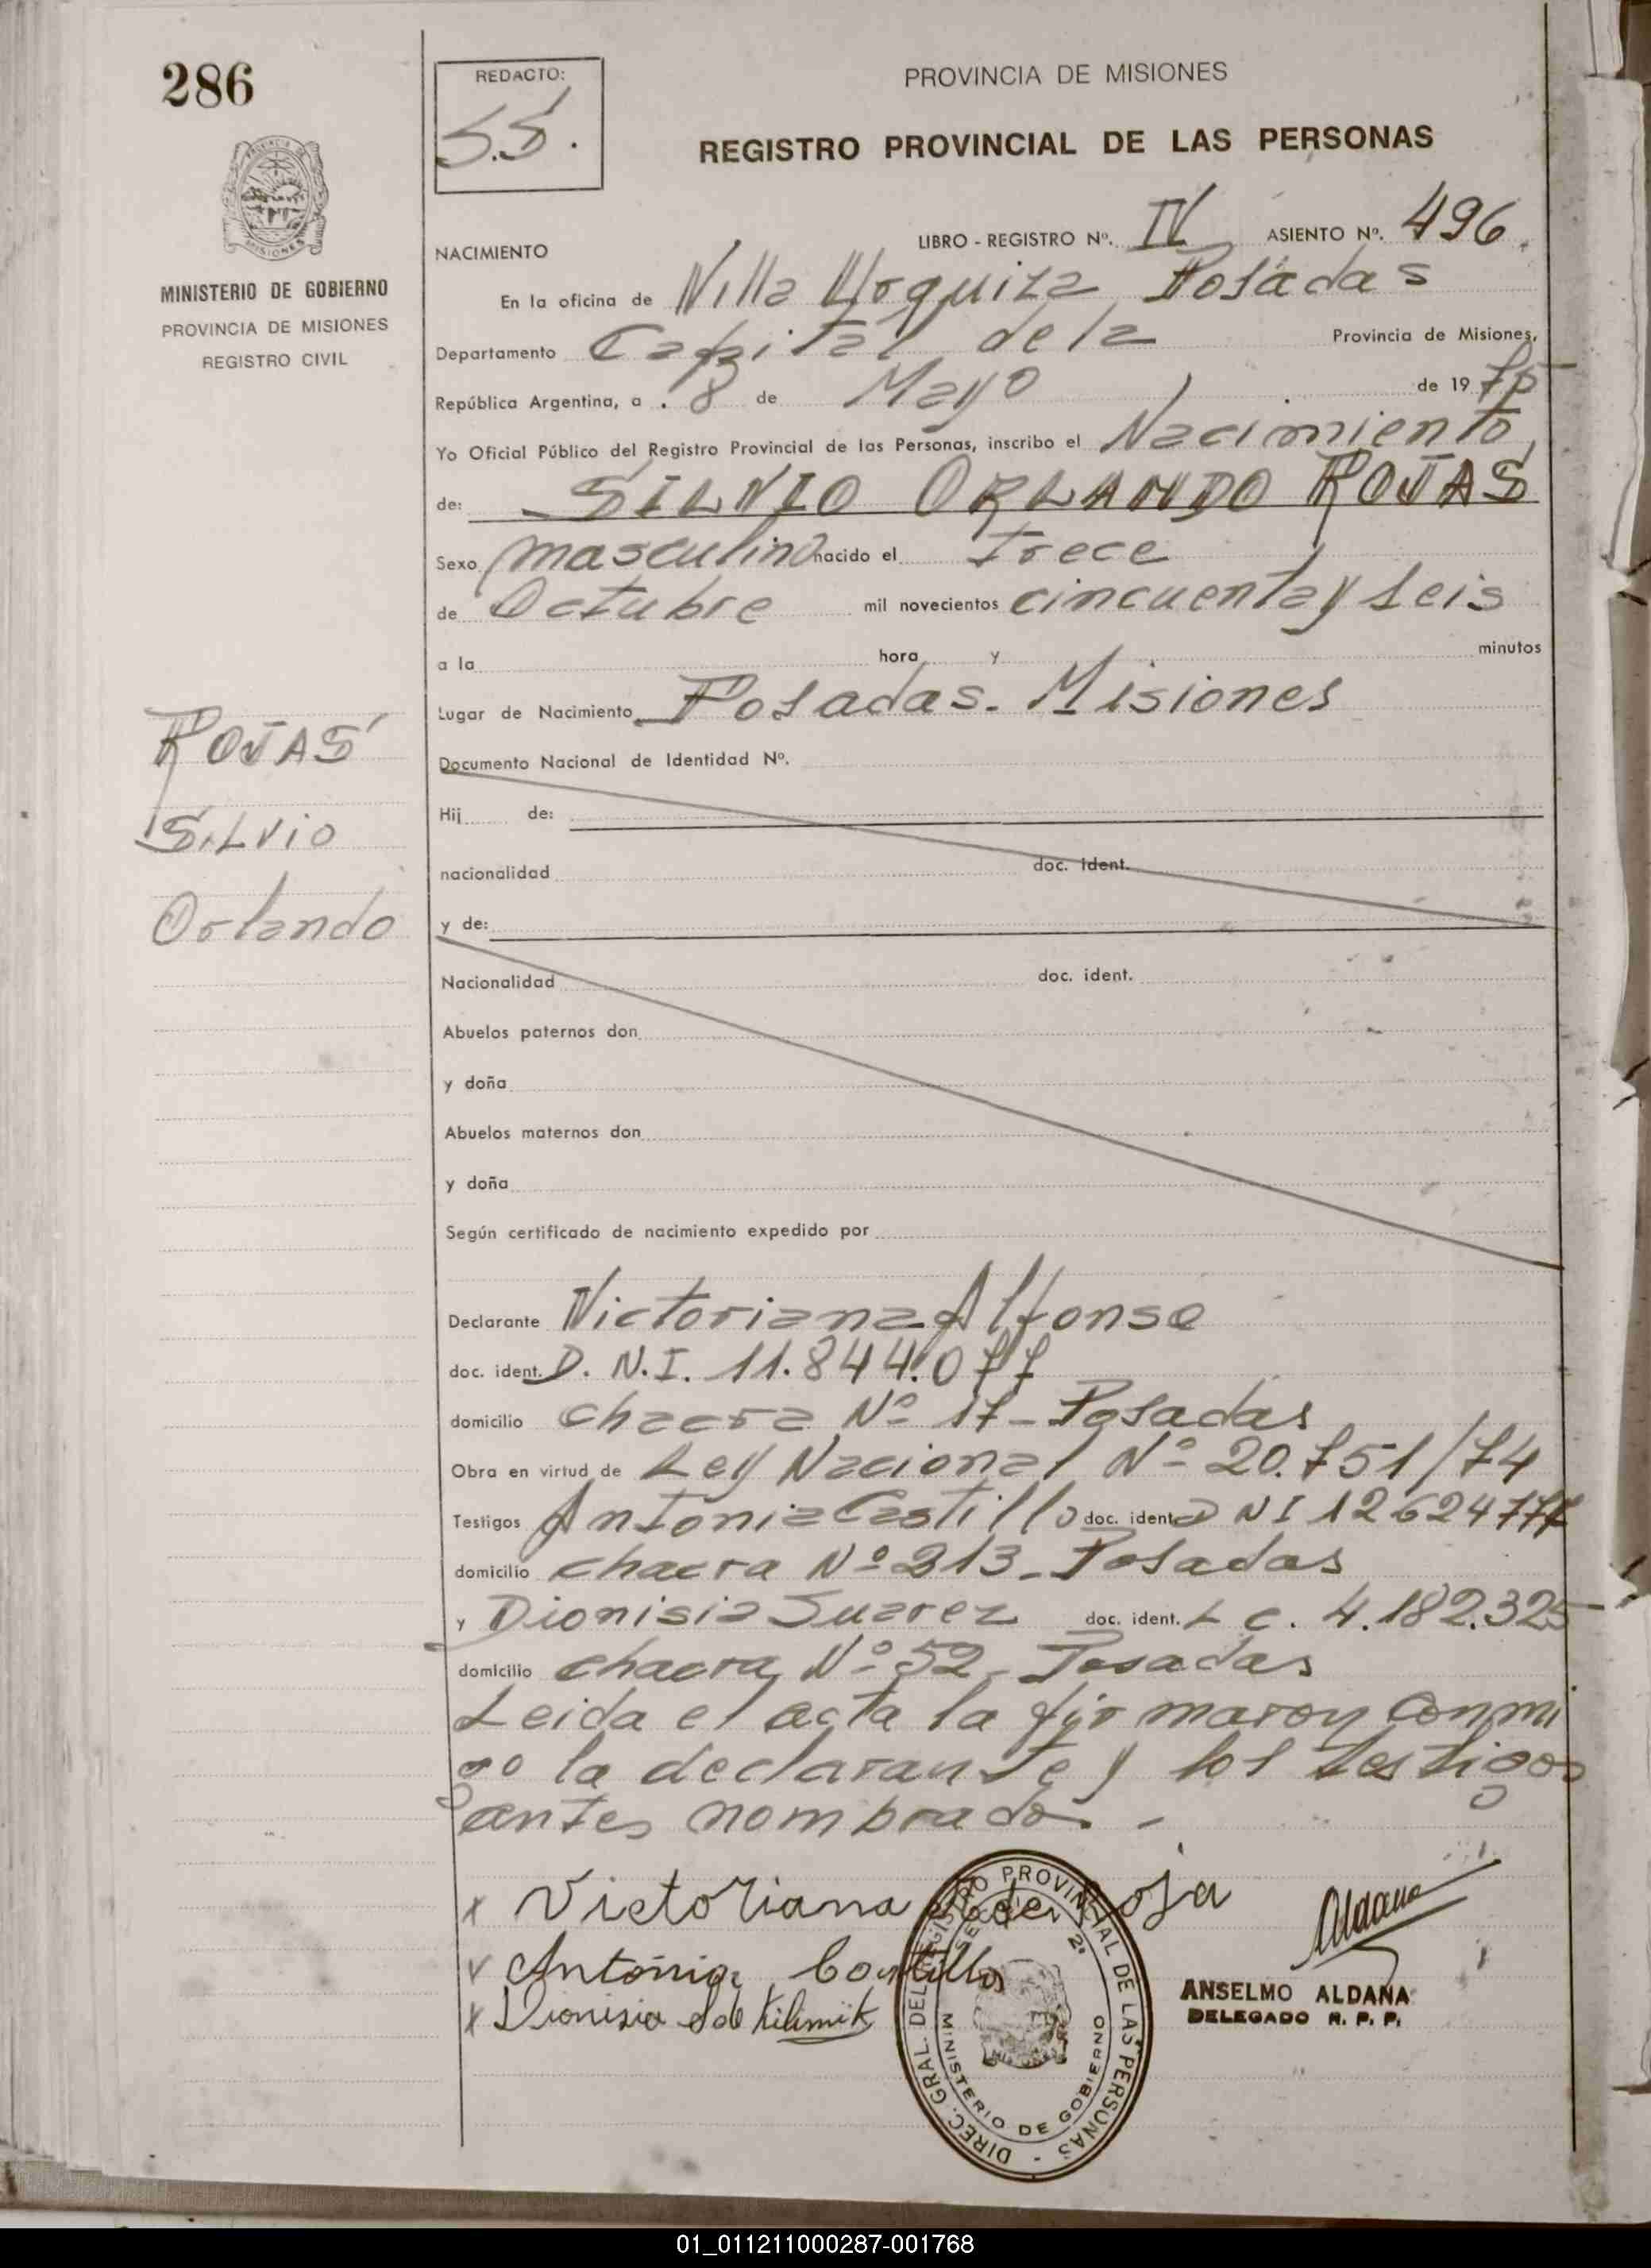 286
REDACTO:
S.S.
PROVINCIA DE MISIONES
REGISTRO PROVINCIAL DE LAS PERSONAS
MINISTERIO DE GOBIERNO
PROVINCIA DE MISIONES
REGISTRO CIVIL
LIBRO - REGISTRO Nº. IV ASIENTO Nº. 496
NACIMIENTO
En la oficina de Villa Urquiza, Posadas
Departamento Capital de la Provincia de Misiones,
República Argentina, a 8 de Mayo de 1975
Yo Oficial Público del Registro Provincial de las Personas, inscribo el Nacimiento
de: SILVIO ORLANDO ROJAS
Sexo masculino nacido el Trece
de Octubre mil novecientos cincuenta y seis
a la hora y minutos
Lugar de Nacimiento Posadas. Misiones
ROJAS
Silvio
Orlando
Documento Nacional de Identidad Nº.
Hij de:
nacionalidad doc. ident.
y de:
Nacionalidad doc. ident.
Abuelos paternos don
y doña
Abuelos maternos don
y doña
Según certificado de nacimiento expedido por
Declarante Victoriana Alfonso
doc. ident. D.N.I. 11.844.077
domicilio chacra Nº 17 - Posadas
Obra en virtud de Ley Nacional Nº 20.751/74
Testigos Antonia Castillo doc. ident. D N I 12624777
domicilio chacra Nº 213 - Posadas
y Dionisia Suarez doc. ident. L c. 4.182.325
domicilio chacra Nº 52 - Posadas
Leida el acta la firmaron conmi
go la declarante y los testigos
antes nombrados.-
x Victoriana de Roja
x Antonia Castillo
x Dionisia S de Kilimik
Aldana
ANSELMO ALDANA
DELEGADO R. P. P.
DIREC. GRAL. DEL REGISTRO PROVINCIAL DE LAS PERSONAS
MINISTERIO DE GOBIERNO
01_011211000287-001768